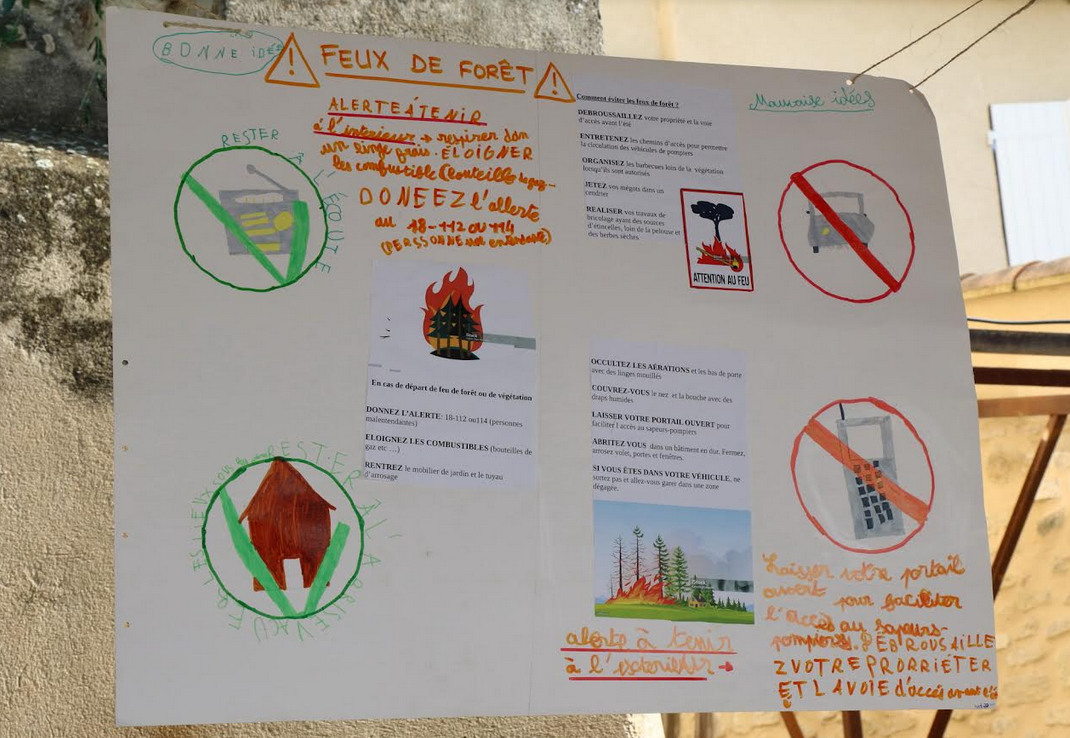 BONNE idée
FEUX DE FORÊT
ALERTE Á TENIR
á l'interieur → respirer dan
un linge frais. ELOIGNER
les combustible (bouteille de gaz...
DONEEZ l'allerte
au 18-112 OU 114
(PERSSONNE mal entendante)
RESTER
À L'ÉCOUTE
En cas de départ de feu de forêt ou de végétation
DONNEZ L'ALERTE: 18-112 ou114 (personnes
malentendantes)
ELOIGNEZ LES COMBUSTIBLES (bouteilles de
gaz etc …)
RENTREZ le mobilier de jardin et le tuyau
d'arrosage
RESTER A L'A
Comment éviter les feux de forêt ?
DEBROUSSAILLEZ votre propriété et la voie
d'accès avant l'été
ENTRETENEZ les chemins d'accès pour permettre
la circulation des véhicules de pompiers
ORGANISEZ les barbecues loin de la végétation
lorsqu'ils sont autorisés
JETEZ vos mégots dans un
cendrier
REALISER vos travaux de
bricolage ayant des sources
d'étincelles, loin de la pelouse et
des herbes sèches
ATTENTION AU FEU
OCCULTEZ LES AÉRATIONS et les bas de porte
avec des linges mouillés
COUVREZ-VOUS le nez et la bouche avec des
draps humides
LAISSER VOTRE PORTAIL OUVERT pour
faciliter l accès au sapeurs-pompiers
ABRITEZ VOUS dans un bâtiment en dur. Fermez,
arrosez volet, portes et fenêtres.
SI VOUS ÊTES DANS VOTRE VÉHICULE, ne
sortez pas et allez-vous garer dans une zone
dégagée.
alerte à tenir
à l'exterieur →
Mauvaise idées
Laisser votre portail
ouvert pour faciliter
l'accès au sapeurs-
pompiers. DÉBROUSAILLE
Z VOTRE PRORRIÉTER
ET LA VOIE d'accès avant l'été